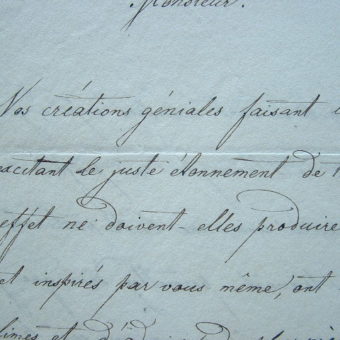 Monsieur.
Vos créations géniales faisant
excitant le juste étonnement de
effet ne doivent-elles produire
et inspirés par vous même, ont